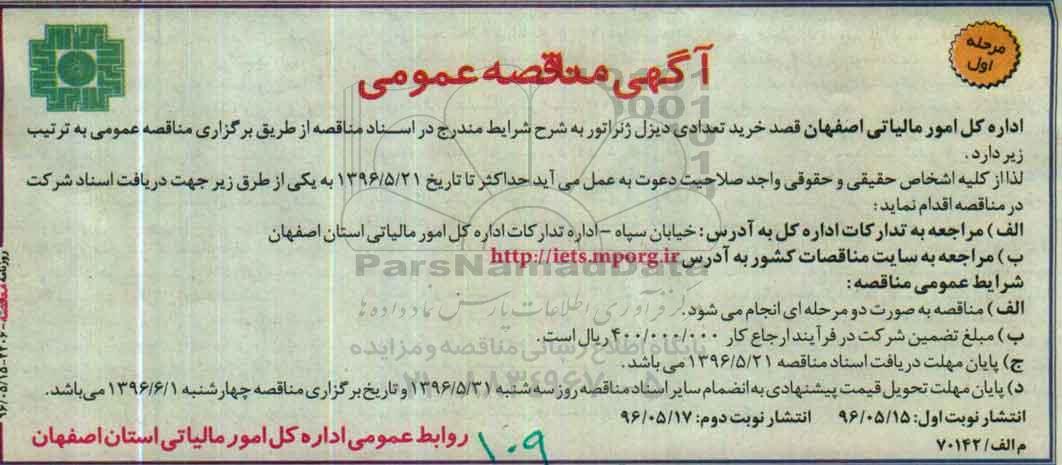 مرحله اول
آگهی مناقصه عمومی
اداره کل امور مالیاتی اصفهان قصد خرید تعدادی دیزل ژنراتور به شرح شرایط مندرج در اسناد مناقصه از طریق برگزاری مناقصه عمومی به ترتیب
زیر دارد.
لذا از کلیه اشخاص حقیقی و حقوقی واجد صلاحیت دعوت به عمل می آید حداکثر تا تاریخ ۱۳۹۶/۵/۲۱ به یکی از طرق زیر جهت دریافت اسناد شرکت
در مناقصه اقدام نماید:
الف) مراجعه به تدارکات اداره کل به آدرس: خیابان سپاه - اداره تدارکات اداره کل امور مالیاتی استان اصفهان
ب) مراجعه به سایت مناقصات کشور به آدرس http://iets.mporg.ir
شرایط عمومی مناقصه:
الف) مناقصه به صورت دو مرحله ای انجام می شود.
ب) مبلغ تضمین شرکت در فرآیند ارجاع کار ۴۰۰/۰۰۰/۰۰۰ ریال است.
ج) پایان مهلت دریافت اسناد مناقصه ۱۳۹۶/۵/۲۱ می باشد.
د) پایان مهلت تحویل قیمت پیشنهادی به انضمام سایر اسناد مناقصه روز سه شنبه ۱۳۹۶/۵/۳۱ و تاریخ برگزاری مناقصه چهارشنبه ۱۳۹۶/۶/۱ می باشد.
انتشار نوبت اول: ۹۶/۰۵/۱۵ انتشار نوبت دوم: ۹۶/۰۵/۱۷
م الف/ ۷۰۱۴۲
روابط عمومی اداره کل امور مالیاتی استان اصفهان
۱۰۹
ParsNamadData
مرکز فرآوری اطلاعات پارس نماد داده ها
پایگاه اطلاع رسانی مناقصه و مزایده
روزنامه مناقصه - ۲۲۰۶ - ۹۶/۰۵/۱۵